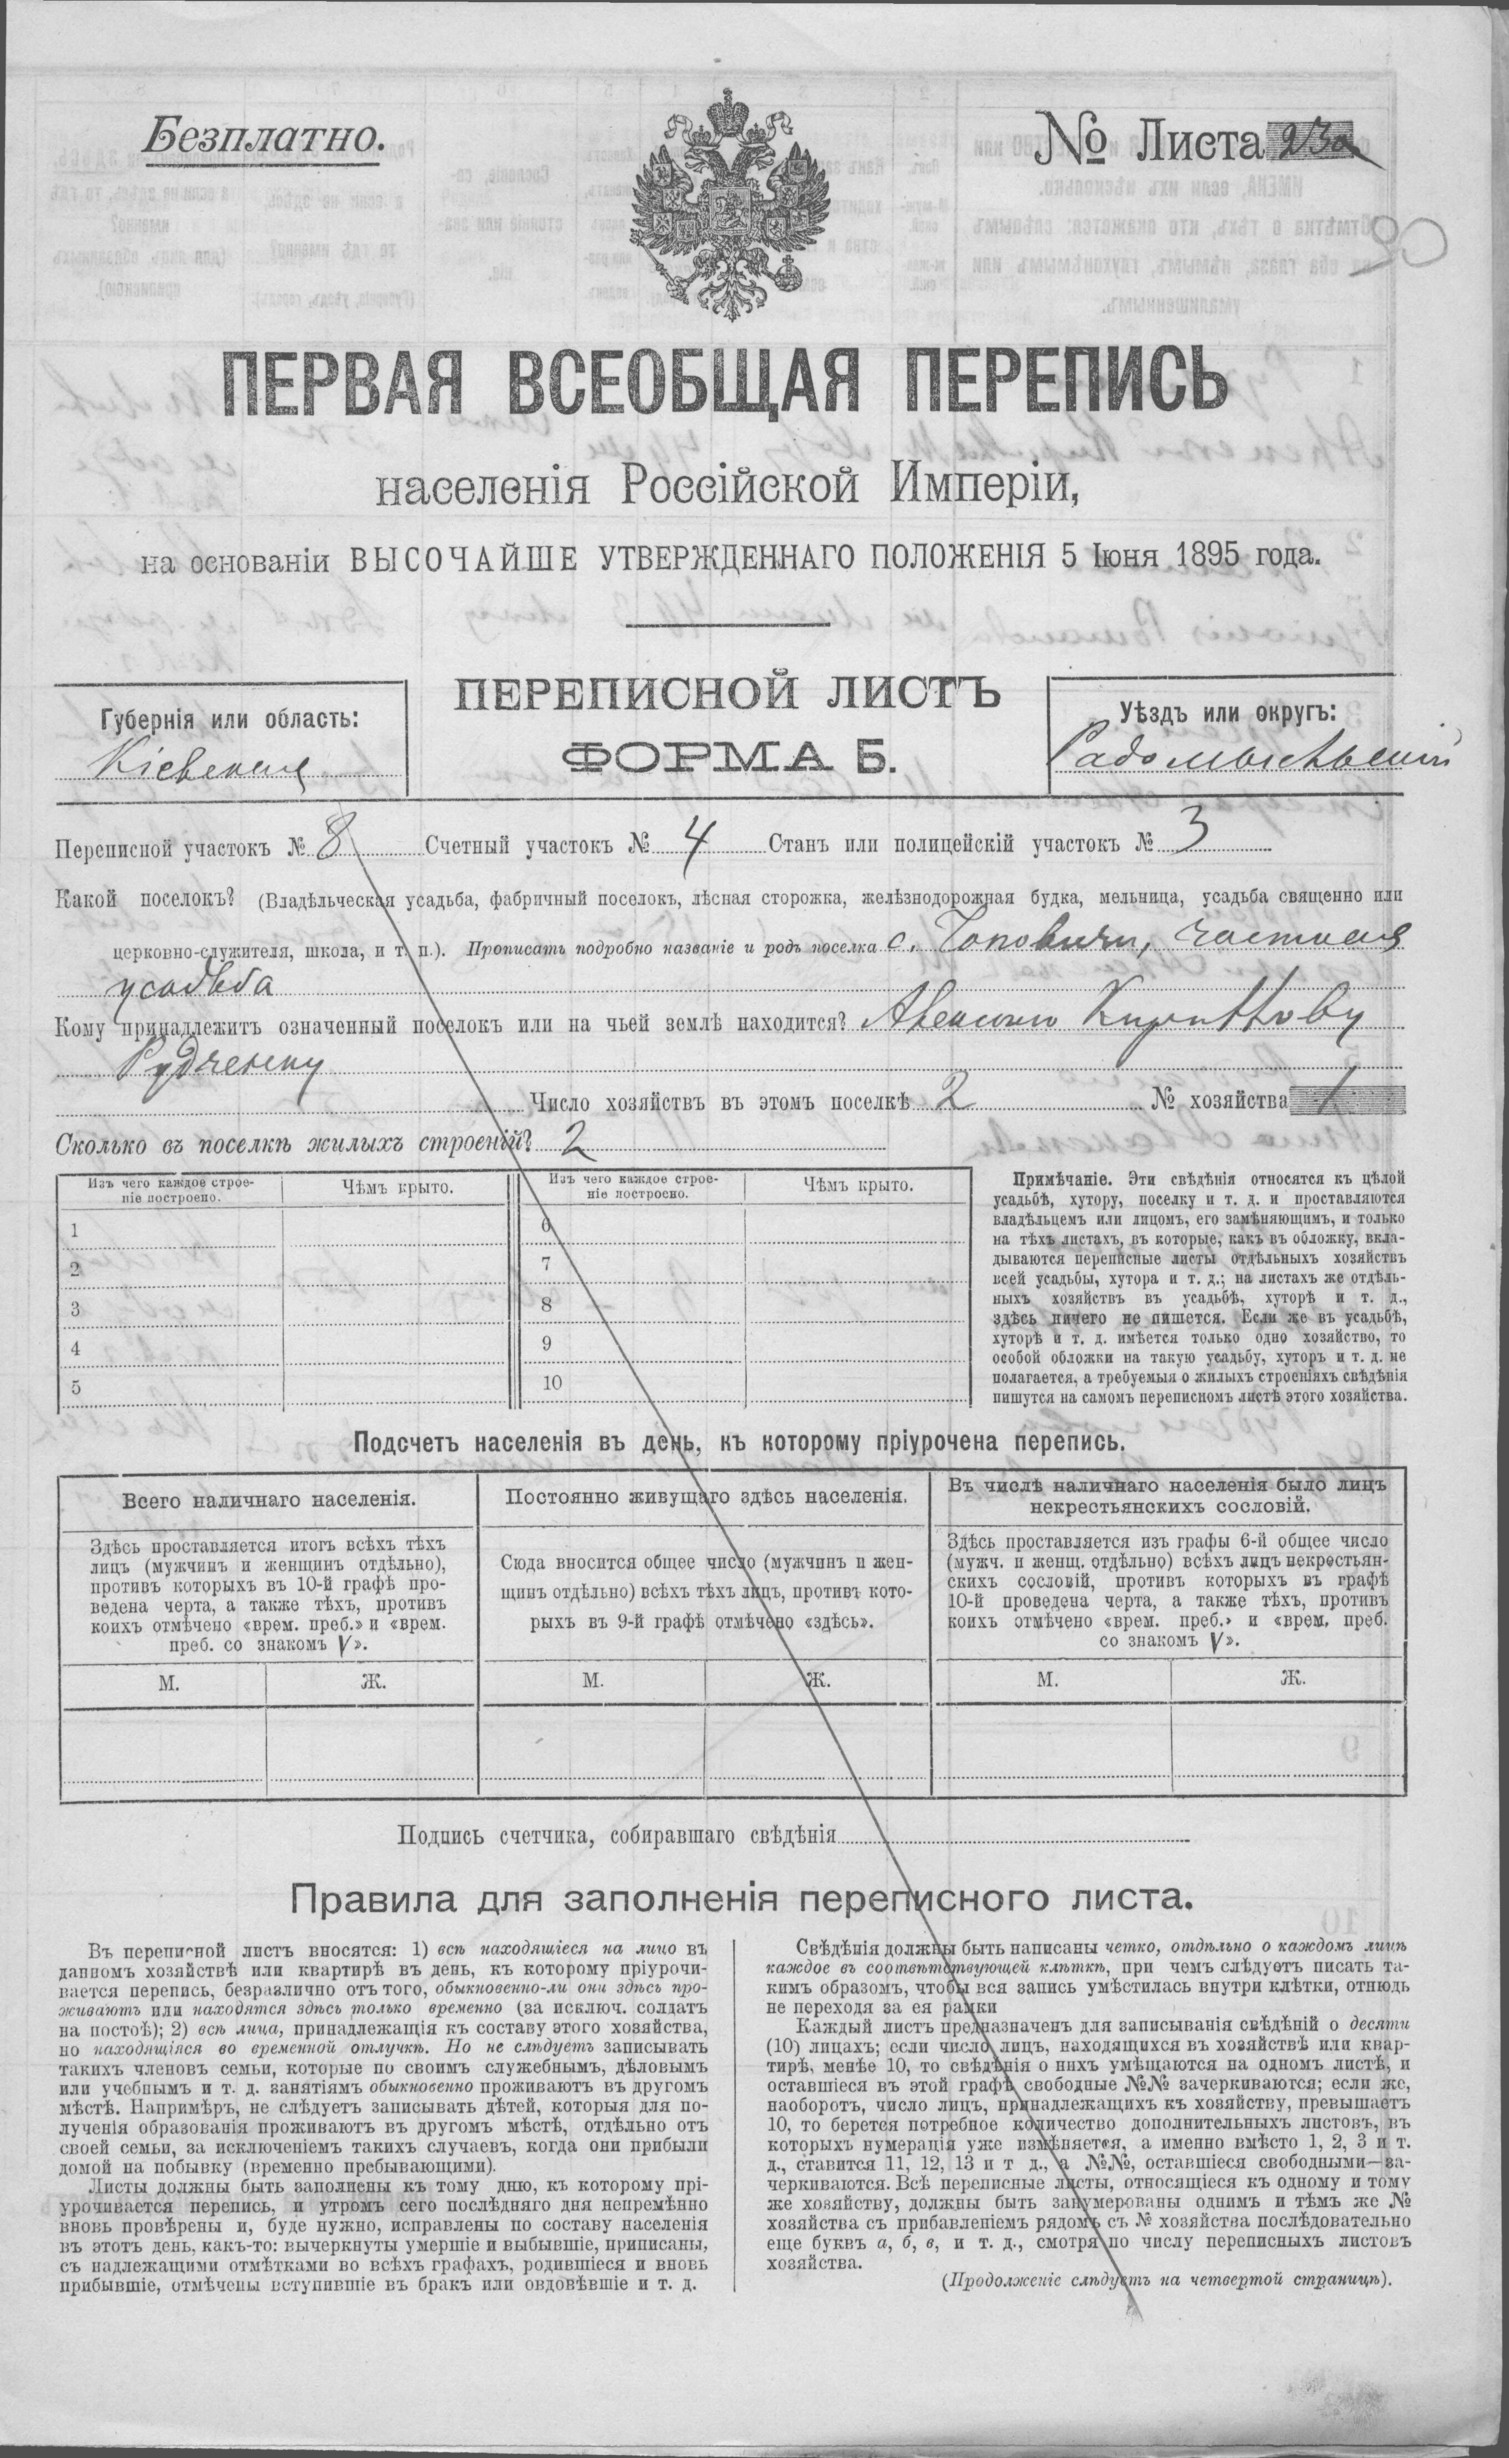 Безплатно.
№ Листа 23а
90
ПЕРВАЯ ВСЕОБЩАЯ ПЕРЕПИСЬ
населенія Россійской Имперіи,
на основаніи ВЫСОЧАЙШЕ УТВЕРЖДЕННАГО ПОЛОЖЕНІЯ 5 Іюня 1895 года.
ПЕРЕПИСНОЙ ЛИСТЪ
ФОРМА Б.
Губернія или область:
Кіевская
Уѣздъ или округъ:
Радомысльскій
Переписной участокъ № 8 Счетный участокъ № 4 Станъ или полицейскій участокъ № 3
Какой поселокъ? (Владѣльческая усадьба, фабричный поселокъ, лѣсная сторожка, желѣзнодорожная будка, мельница, усадьба священно или
церковно-служителя, школа, и т. п.). Прописать подробно названіе и родъ поселка с. Чоповичи, частная
усадьба
Кому принадлежитъ означенный поселокъ или на чьей землѣ находится? Кириллову
Рудченку
Число хозяйствъ въ этомъ поселкѣ 2 № хозяйства 1
Сколько въ поселкѣ жилыхъ строеній? 2
Изъ чего каждое строе-
ніе построено.
Чѣмъ крыто.
Изъ чего каждое строе-
ніе построено.
Чѣмъ крыто.
1
2
3
4
5
6
7
8
9
10
Примѣчаніе. Эти свѣдѣнія относятся къ цѣлой
усадьбѣ, хутору, поселку и т. д. и проставляются
владѣльцемъ или лицомъ, его замѣняющимъ, и только
на тѣхъ листахъ, въ которые, какъ въ обложку, вкла-
дываются переписные листы отдѣльныхъ хозяйствъ
всей усадьбы, хутора и т. д.; на листахъ же отдѣль-
ныхъ хозяйствъ въ усадьбѣ, хуторѣ и т. д.,
здѣсь ничего не пишется. Если же въ усадьбѣ,
хуторѣ и т. д. имѣется только одно хозяйство, то
особой обложки на такую усадьбу, хуторъ и т. д. не
полагается, а требуемыя о жилыхъ строеніяхъ свѣдѣнія
пишутся на самомъ переписномъ листѣ этого хозяйства.
Подсчетъ населенія въ день, къ которому пріурочена перепись.
Всего наличнаго населенія.
Здѣсь проставляется итогъ всѣхъ тѣхъ
лицъ (мужчинъ и женщинъ отдѣльно),
противъ которыхъ въ 10-й графѣ про-
ведена черта, а также тѣхъ, противъ
коихъ отмѣчено «врем. преб.» и «врем.
преб. со знакомъ V».
М. Ж.
Постоянно живущаго здѣсь населенія.
Сюда вносится общее число (мужчинъ и жен-
щинъ отдѣльно) всѣхъ тѣхъ лицъ, противъ кото-
рыхъ въ 9-й графѣ отмѣчено «здѣсь».
М. Ж.
Въ числѣ наличнаго населенія было лицъ
некрестьянскихъ сословій.
Здѣсь проставляется изъ графы 6-й общее число
(мужч. и женщ. отдѣльно) всѣхъ лицъ некрестьян-
скихъ сословій, противъ которыхъ въ графѣ
10-й проведена черта, а также тѣхъ, противъ
коихъ отмѣчено «врем. преб.» и «врем. преб.
со знакомъ V».
М. Ж.
Подпись счетчика, собиравшаго свѣдѣнія
Правила для заполненія переписного листа.
Въ переписной листъ вносятся: 1) всѣ находящіеся на лицо въ
данномъ хозяйствѣ или квартирѣ въ день, къ которому пріурочи-
вается перепись, безразлично отъ того, обыкновенно-ли они здѣсь про-
живаютъ или находятся здѣсь только временно (за исключ. солдатъ
на постоѣ); 2) всѣ лица, принадлежащія къ составу этого хозяйства,
но находящіяся во временной отлучкѣ. Но не слѣдуетъ записывать
такихъ членовъ семьи, которые по своимъ служебнымъ, дѣловымъ
или учебнымъ и т. д. занятіямъ обыкновенно проживаютъ въ другомъ
мѣстѣ. Напримѣръ, не слѣдуетъ записывать дѣтей, которыя для по-
лученія образованія проживаютъ въ другомъ мѣстѣ, отдѣльно отъ
своей семьи, за исключеніемъ такихъ случаевъ, когда они прибыли
домой на побывку (временно пребывающими).
Листы должны быть заполнены къ тому дню, къ которому прі-
урочивается перепись, и утромъ сего послѣдняго дня непремѣнно
вновь провѣрены и, буде нужно, исправлены по составу населенія
въ этотъ день, какъ-то: вычеркнуты умершіе и выбывшіе, приписаны,
съ надлежащими отмѣтками во всѣхъ графахъ, родившіеся и вновь
прибывшіе, отмѣчены вступившіе въ бракъ или овдовѣвшіе и т. д.
Свѣдѣнія должны быть написаны четко, отдѣльно о каждомъ лицѣ
каждое въ соотвѣтствующей клѣткѣ, при чемъ слѣдуетъ писать та-
кимъ образомъ, чтобы вся запись умѣстилась внутри клѣтки, отнюдь
не переходя за ея рамки
Каждый листъ предназначенъ для записыванія свѣдѣній о десяти
(10) лицахъ; если число лицъ, находящихся въ хозяйствѣ или квар-
тирѣ, менѣе 10, то свѣдѣнія о нихъ умѣщаются на одномъ листѣ, и
оставшіеся въ этой графѣ свободные №№ зачеркиваются; если же,
наоборотъ, число лицъ, принадлежащихъ къ хозяйству, превышаетъ
10, то берется потребное количество дополнительныхъ листовъ, въ
которыхъ нумерація уже измѣняется, а именно вмѣсто 1, 2, 3 и т.
д., ставится 11, 12, 13 и т д., а №№, оставшіеся свободными—за-
черкиваются. Всѣ переписные листы, относящіеся къ одному и тому
же хозяйству, должны быть занумерованы однимъ и тѣмъ же №
хозяйства съ прибавленіемъ рядомъ съ № хозяйства послѣдовательно
еще буквъ а, б, в, и т. д., смотря по числу переписныхъ листовъ
хозяйства.
(Продолженіе слѣдуетъ на четвертой страницѣ).